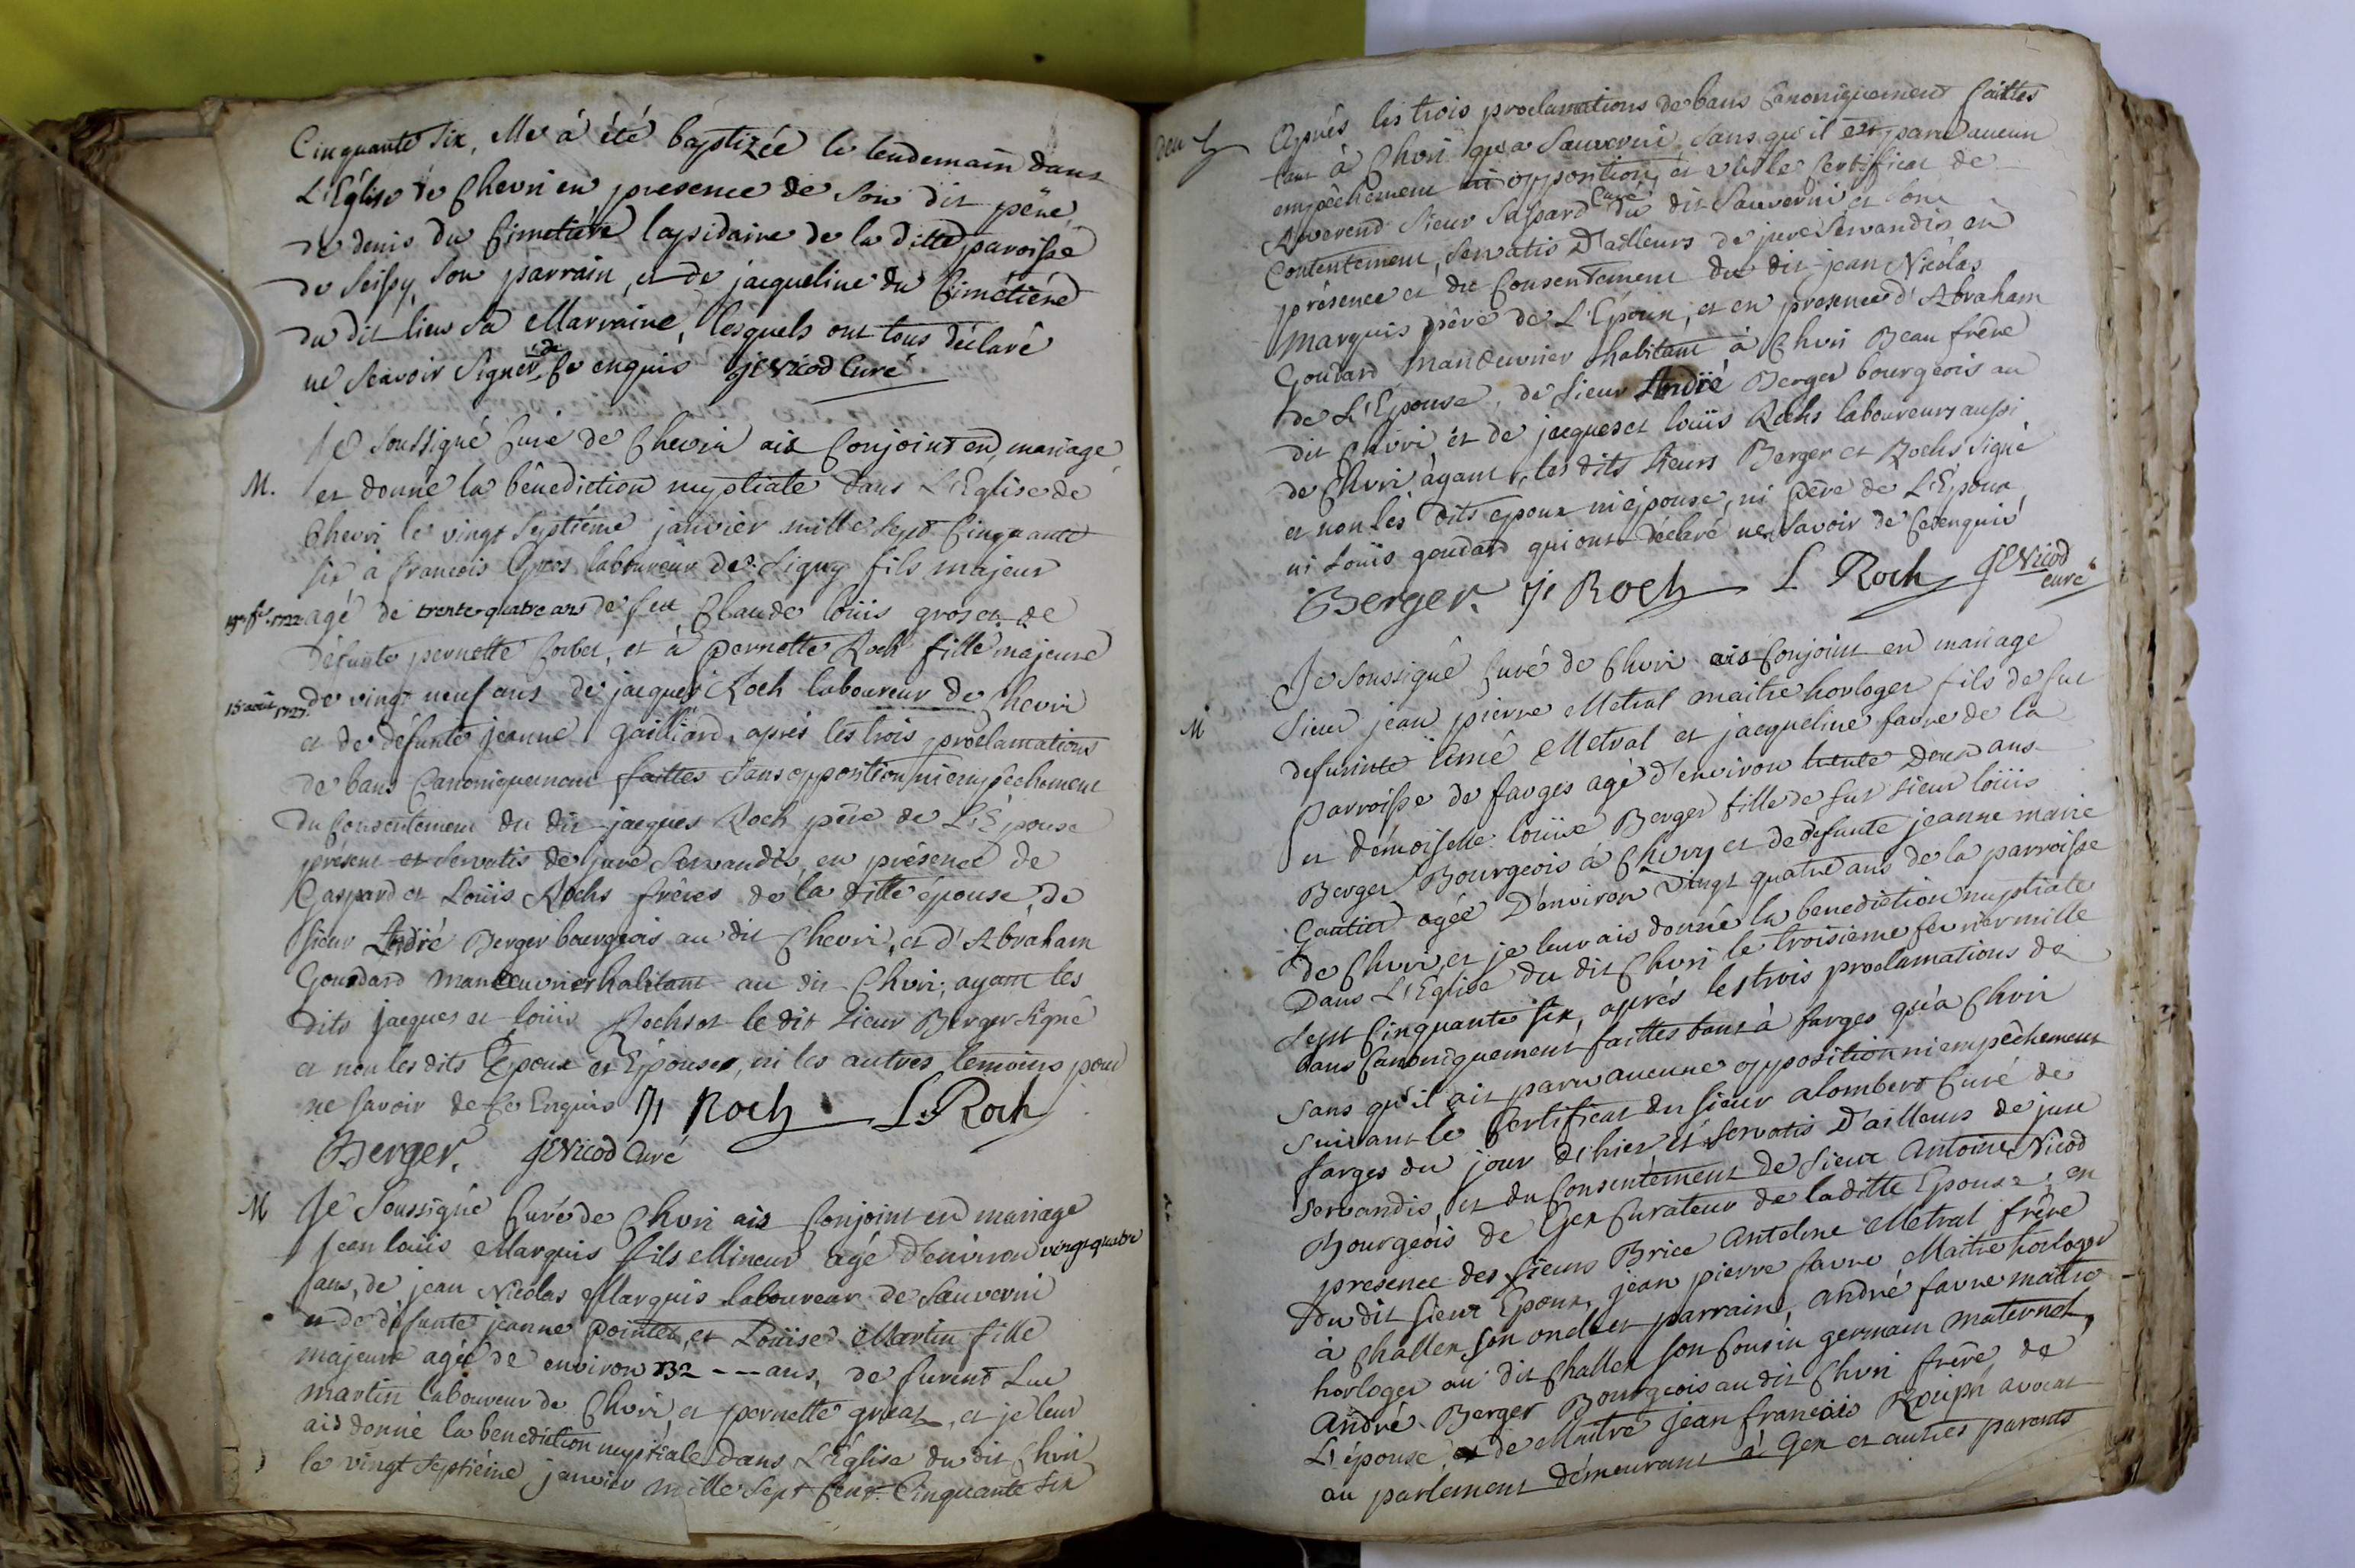 Cinquante six, elle à été baptizée le lendemain dans
L'Église de Chevri en presence de son dit père,
de denis du Cimetière lapidaire de la ditte paroisse
de Sessy, son parrain, et de jacqueline du Cimétiéré
du dit lieu sa Marraine, lesquels ont tous déclaré
ne Scavoir Signer de Ce enquis JE Nicod Curé
M.
Je soussigné Curé de Chevri ais Conjoint en mariage
et donné la bénediction nuptiale dans L'Eglise de
Chevri le vingt Septième janvier mille Sept Cinquante
six à francois Gros laboureur de Signy fils majeur
1722 agé de trente quatre ans de feu Claude loüis gros et de
défunte pernette Corbet, et à pernette Roch fille majeure
15 août 1727 de vingt neuf ans de jacques Roch laboureur de Chevri
et de défunte jeanne Gailliard, aprés les trois proclamations
de bans Canoniquement faittes sans opposition ni empêchement
du Consentement du dit jacques Roch père de L'Épouse
présent et Servatis de jure Servandis, en présence de
Gaspard et Loüis Rochs frères de la ditte épouse, de
sieur André Berger bourgeois au dit Chevri, et d'Abraham
Goudard manoeuvrier habitant au dit Chvri, ayant les
dits jacques et loüis Rochs et le dit sieur Berger signé
et non les dits Epoux et Epouse, ni les autres temoins pour
ne savoir de Ce Enquis J Roch L. Roch
Berger. JE Nicod Curé
M
Je Soussigné Curé de Chvri ais Conjoint en mariage
Jean loüis Marquis fils Mineur agé d'environ vingt quatre
ans, de jean Nicolas Marquis laboureur de Sauverni
et de défunte jeanne Pointet, et Loüise Martin fille
majeure agée de environ 32 --- ans, de furent Luc
martin laboureur de Chvri, et pernette, et je leur
ais donné la benediction nuptiale dans L'Église du dit Chvri
le vingt Septiéme janvier mille Sept Cent Cinquante six
Aprés les trois proclamations de bans Canoniquement faittes
tant à Chvri qu'a Sauverni sans qu'il ait paru aucun
empêchement ni opposition, et vû le Certificat de
Reverend Sieur Curé du dit Sauverni et son
Contentement, Servatis D'ailleurs de jure Servandis en
présence et du Consentement du dit jean Nicolas
Marquis père de L'Époux, et en presence d'Abraham
Goudard manoeuvrier habitant à Chvri Beau frère
de L'Épouse, de sieur André Berger bourgeois au
dit Chvri et de jacques et loüis Rochs laboureurs aussi
de Chvri ayant, les dits sieurs Berger et Rochs signé
et non les dits epoux ni épouse, ni père de L'Époux,
ni Loüis goudard qui ont déclaré ne Savoir de Ce enquis
Berger. J Roch L Roch JE Nicod
curé
M
Je Soussigné Curé de Chvri ais Conjoint en mariage
Sieur jean pierre Metral maitre horloger fils de feu
Aimé Metral et jacqueline favre de la
Parroisse de farges agé d'environ trente Deux ans
et démoiselle loüise Berger fille de feu sieur loüis
Berger Bourgeois à Chivry et de défunte jeanne marie
Gautier agée D'environ vingt quatre ans de la parroisse
de Chvri, et je leur ais donné la benediction nuptiale
Dans L'Eglise du dit Chvri le troisieme fevrier mille
Sept Cinquante six, aprés les trois proclamations de
bans Canoniquement faittes tant à farges qu'a Chvri
Sans qu'il ait paru aucune opposition ni empêchement
Suivant le Certificat du sieur alombert Curé de
farges du jour d'hier, et Servatis D'ailleurs de jure
Servandis, et du Consentement de Sieur Antoine Nicod
Bourgeois de Gex Curateur de laditte Epouse, en
presence des sieurs Brice Antelme Metral frère
du dit sieur Epoux, jean pierre favre Maitre horloger
à Challex son oncle et parrain, André favre maitre
horloger au dit Challex son Cousin germain maternel,
André Berger Bourgeois au dit Chvri frère de
L'épouse, de Maitre jean francois avocat
au parlement démeurant à Gex et autres parents